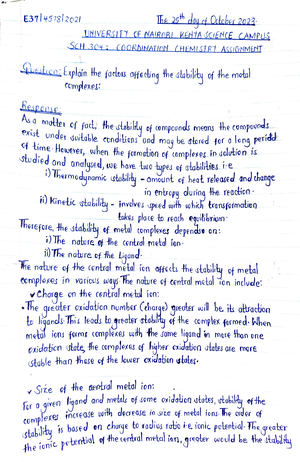 E37/4578/2021 The 25th day of October 2023.
UNIVERSITY OF NAIROBI KENYA SCIENCE CAMPUS
SCH 304: COORDINATION CHEMISTRY ASSIGNMENT
Question: Explain the factors affecting the stability of the metal
complexes:
Response:
As a matter of fact, the stability of compounds means the compounds
exist under suitable conditions and may be stored for a long period
of time. However, when the formation of complexes in solution is
studied and analysed, we have two types of stabilities i.e
i) Thermodynamic stability - amount of heat released and change
in entropy during the reaction.
ii) Kinetic stability - involves speed with which transformation
takes place to reach equilibrium.
Therefore, the stability of metal complexes depends on:
i) The nature of the central metal ion.
ii) The nature of the Ligand.
The nature of the central metal ion affects the stability of metal
complexes in various ways. The nature of central metal ion include:
✓ Charge on the central metal ion:
• The greater oxidation number (charge) greater will be its attraction
to ligands. This leads to greater stability of the complex formed. When
metal ions forms complexes with the same ligand in more than one
oxidation state, the complexes of higher oxidation states are more
stable than these of the lower oxidation states.
✓ Size of the central metal ion:
For a given ligand and metals of same oxidation states, stability of the
complexes increase with decrease in size of metal ions. The order of
stability is based on charge to radius ratio i.e. ionic potential. The greater
the ionic potential of the central metal ion, greater would be the stability